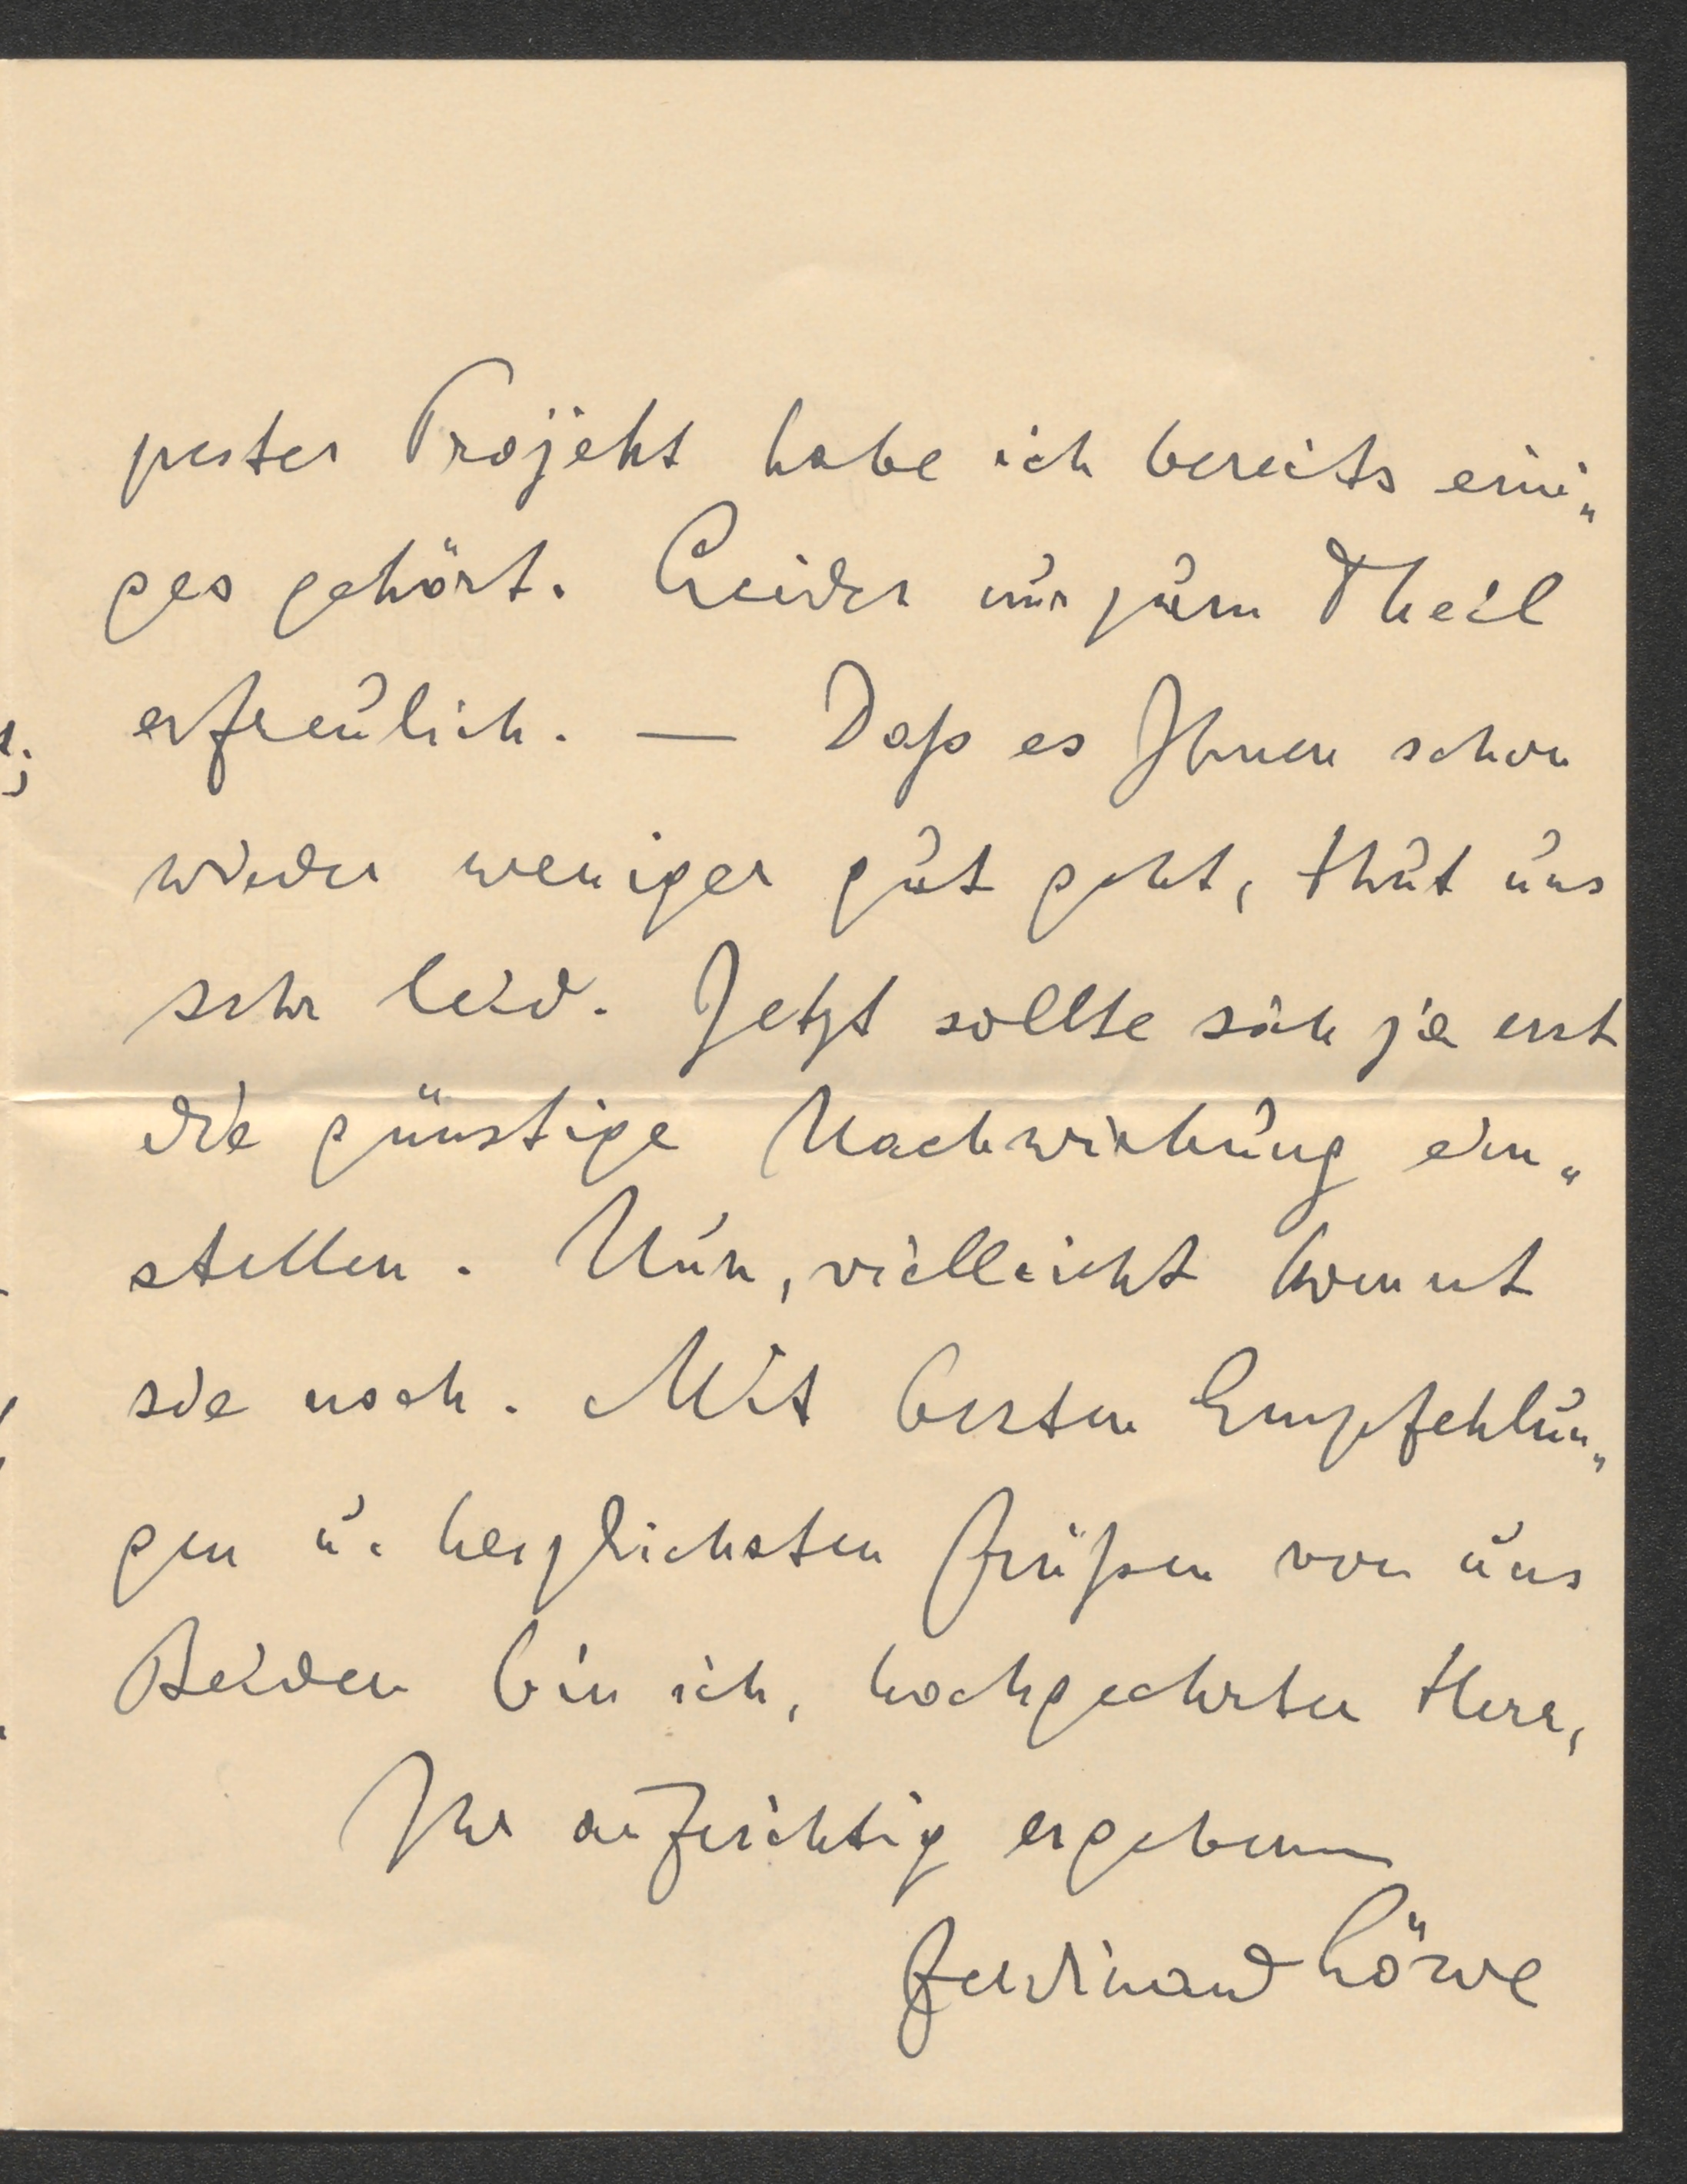 pester Projekt habe ich bereits eini„
ges gehört. Leider nur zum Theil
erfreulich. — Daß es Ihnen schon
wieder weniger gut geht, thut uns
sehr leid. Jetzt sollte sich ja erst
die günstige Nachwirkung ein„
stellen. Nun, vielleicht kommt
sie noch. Mit besten Empfehlun„
gen u. herzlichsten Grüßen von uns
Beiden bin ich, hochgeehrter Herr,
Ihr aufrichtig ergebener
Ferdinand Löwe